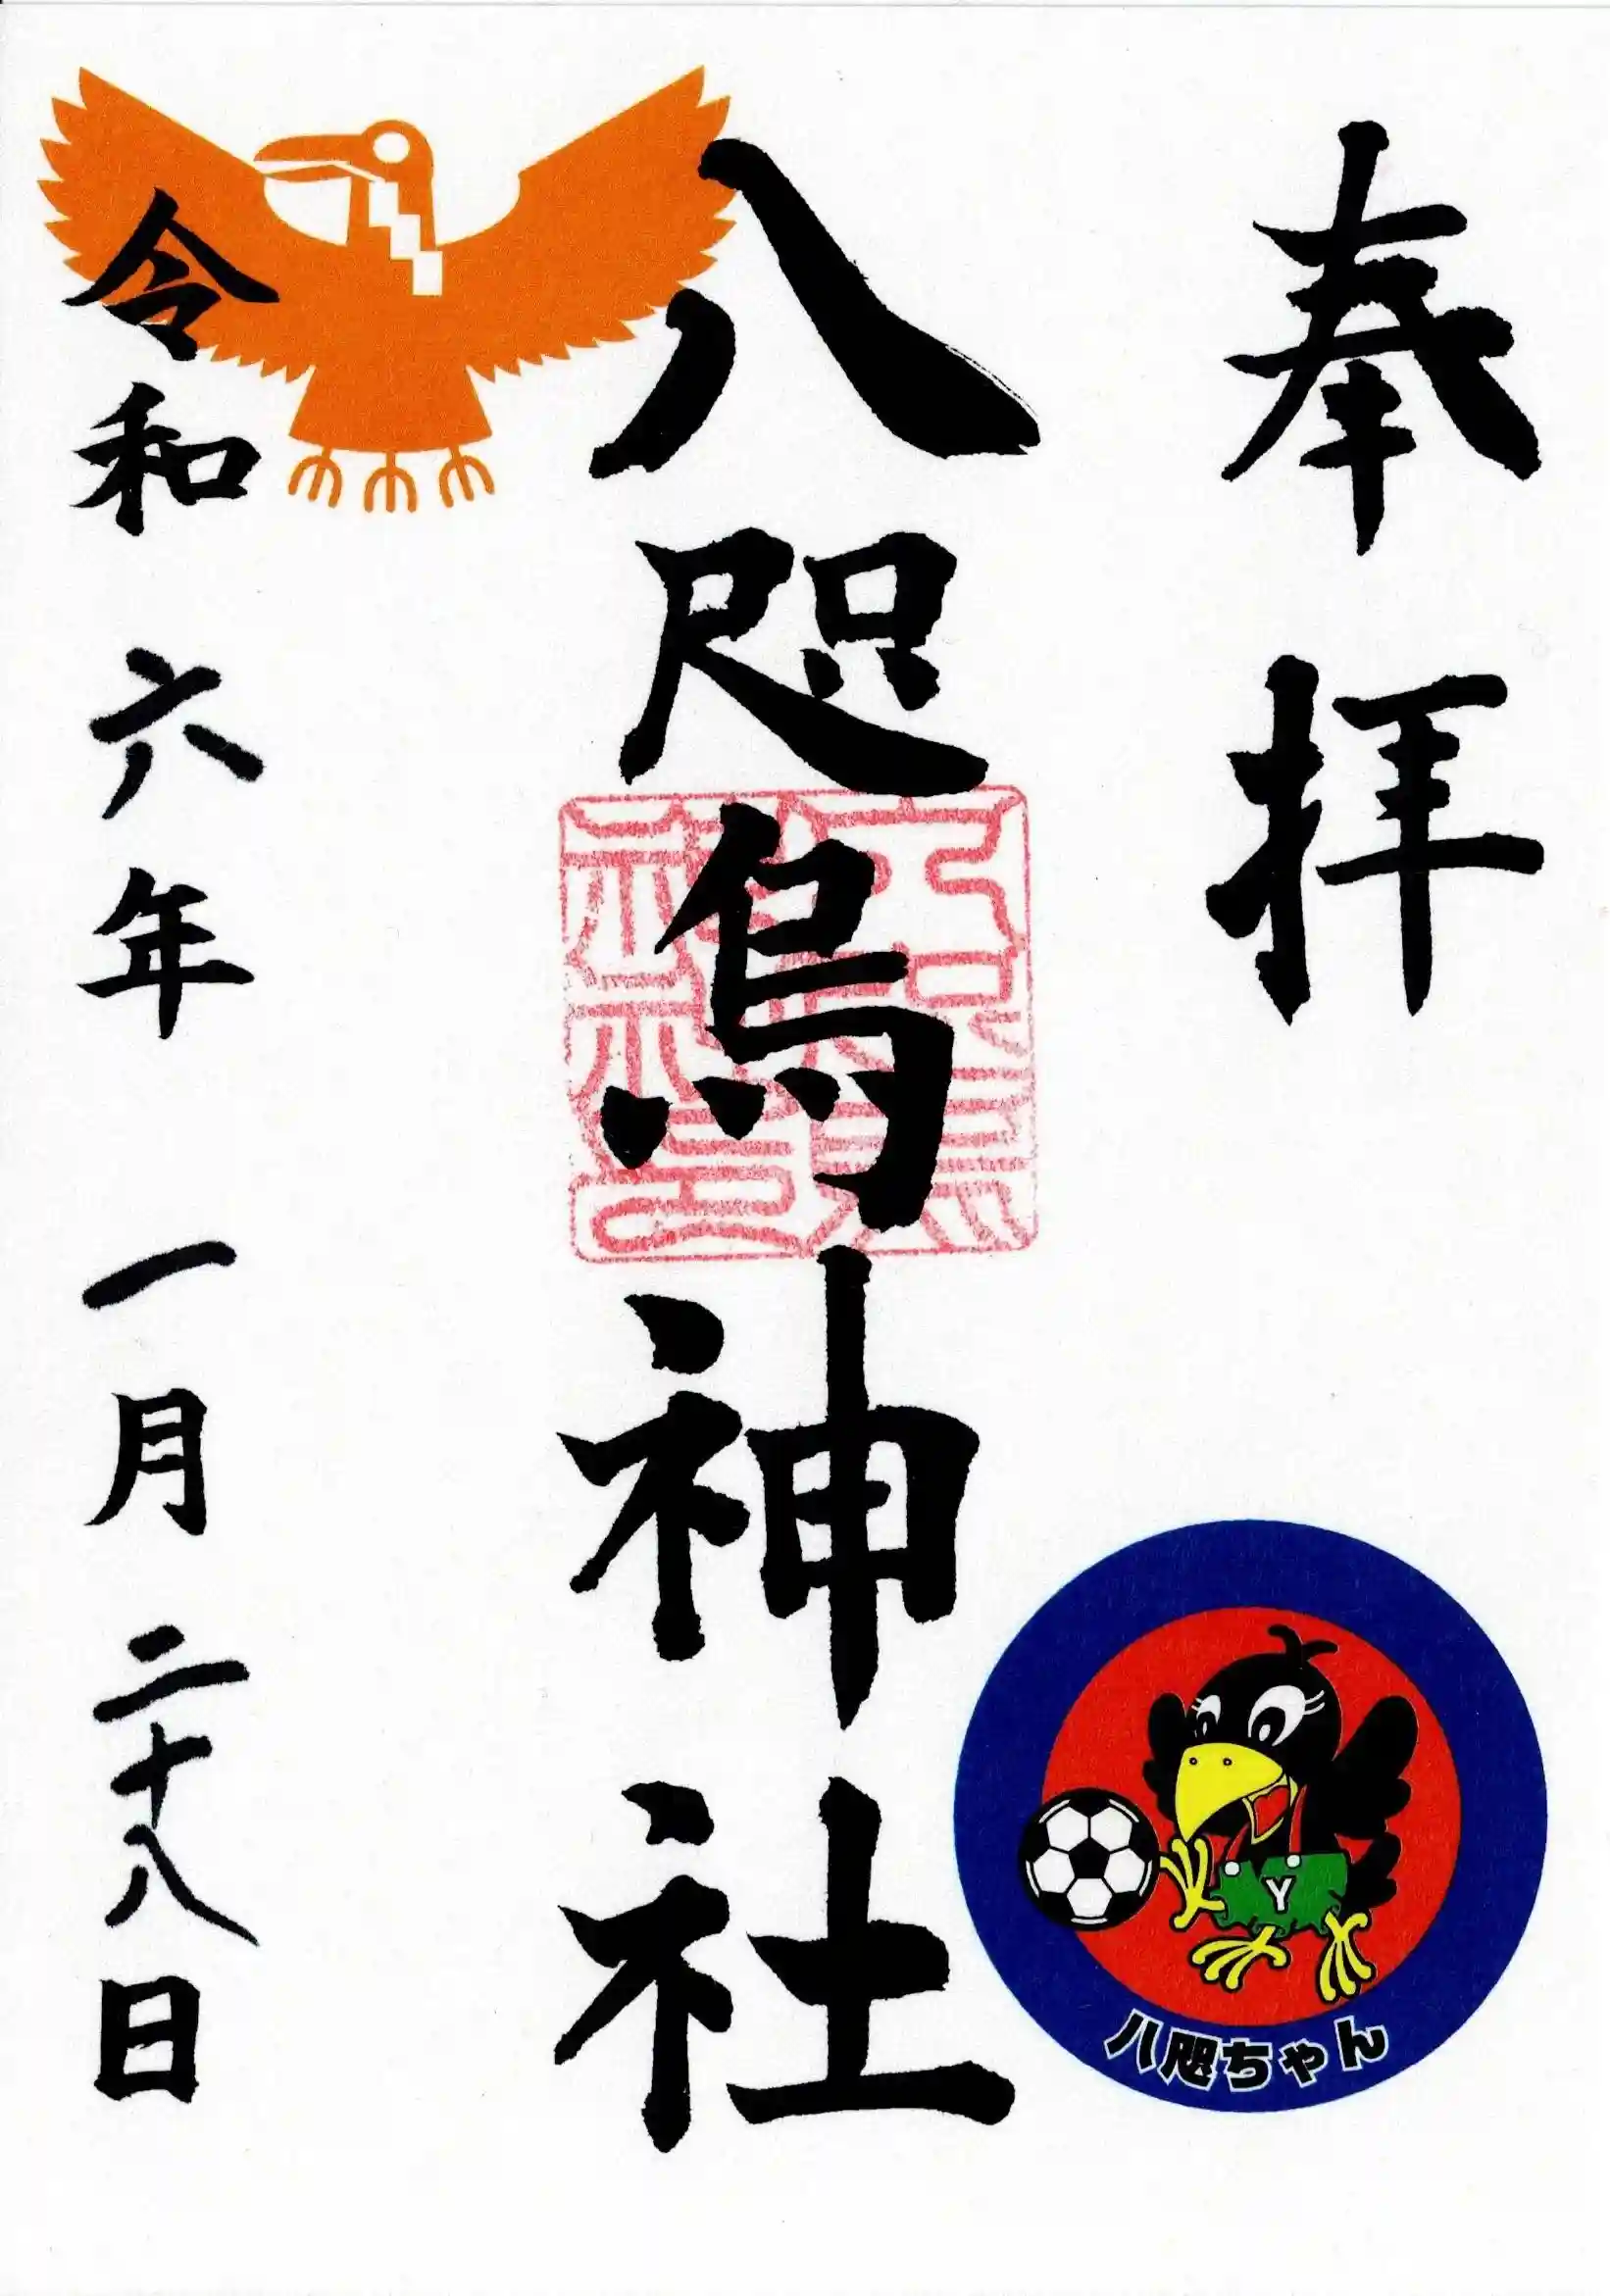 奉拝
八咫烏神社
令和六年一月二十八日
Y
八咫ちゃん